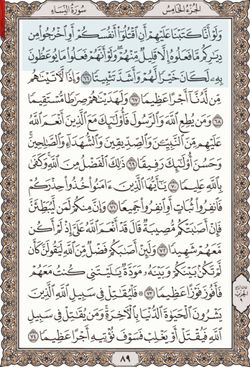 الجزء الخامس سورة النساء
وَلَوْ أَنَّا كَتَبْنَا عَلَيْهِمْ أَنِ اقْتُلُوا أَنفُسَكُمْ أَوِ اخْرُجُوا مِن
دِيَارِكُم مَّا فَعَلُوهُ إِلَّا قَلِيلٌ مِّنْهُمْ وَلَوْ أَنَّهُمْ فَعَلُوا مَا يُوعَظُونَ
بِهِ لَكَانَ خَيْرًا لَّهُمْ وَأَشَدَّ تَثْبِيتًا ٦٦ وَإِذًا لَّآتَيْنَاهُم
مِّن لَّدُنَّا أَجْرًا عَظِيمًا ٦٧ وَلَهَدَيْنَاهُمْ صِرَاطًا مُّسْتَقِيمًا
٦٨ وَمَن يُطِعِ اللَّهَ وَالرَّسُولَ فَأُولَٰئِكَ مَعَ الَّذِينَ أَنْعَمَ اللَّهُ
عَلَيْهِم مِّنَ النَّبِيِّينَ وَالصِّدِّيقِينَ وَالشُّهَدَاءِ وَالصَّالِحِينَ
وَحَسُنَ أُولَٰئِكَ رَفِيقًا ٦٩ ذَٰلِكَ الْفَضْلُ مِنَ اللَّهِ وَكَفَىٰ
بِاللَّهِ عَلِيمًا ٧٠ يَا أَيُّهَا الَّذِينَ آمَنُوا خُذُوا حِذْرَكُمْ
فَانفِرُوا ثُبَاتٍ أَوِ انفِرُوا جَمِيعًا ٧١ وَإِنَّ مِنكُمْ لَمَن لَّيُبَطِّئَنَّ
فَإِنْ أَصَابَتْكُم مُّصِيبَةٌ قَالَ قَدْ أَنْعَمَ اللَّهُ عَلَيَّ إِذْ لَمْ أَكُن
مَّعَهُمْ شَهِيدًا ٧٢ وَلَئِنْ أَصَابَكُمْ فَضْلٌ مِّنَ اللَّهِ لَيَقُولَنَّ كَأَن
لَّمْ تَكُن بَيْنَكُمْ وَبَيْنَهُ مَوَدَّةٌ يَا لَيْتَنِي كُنتُ مَعَهُمْ
فَأَفُوزَ فَوْزًا عَظِيمًا ٧٣ فَلْيُقَاتِلْ فِي سَبِيلِ اللَّهِ الَّذِينَ
يَشْرُونَ الْحَيَاةَ الدُّنْيَا بِالْآخِرَةِ وَمَن يُقَاتِلْ فِي سَبِيلِ
اللَّهِ فَيُقْتَلْ أَوْ يَغْلِبْ فَسَوْفَ نُؤْتِيهِ أَجْرًا عَظِيمًا ٧٤
٨٩